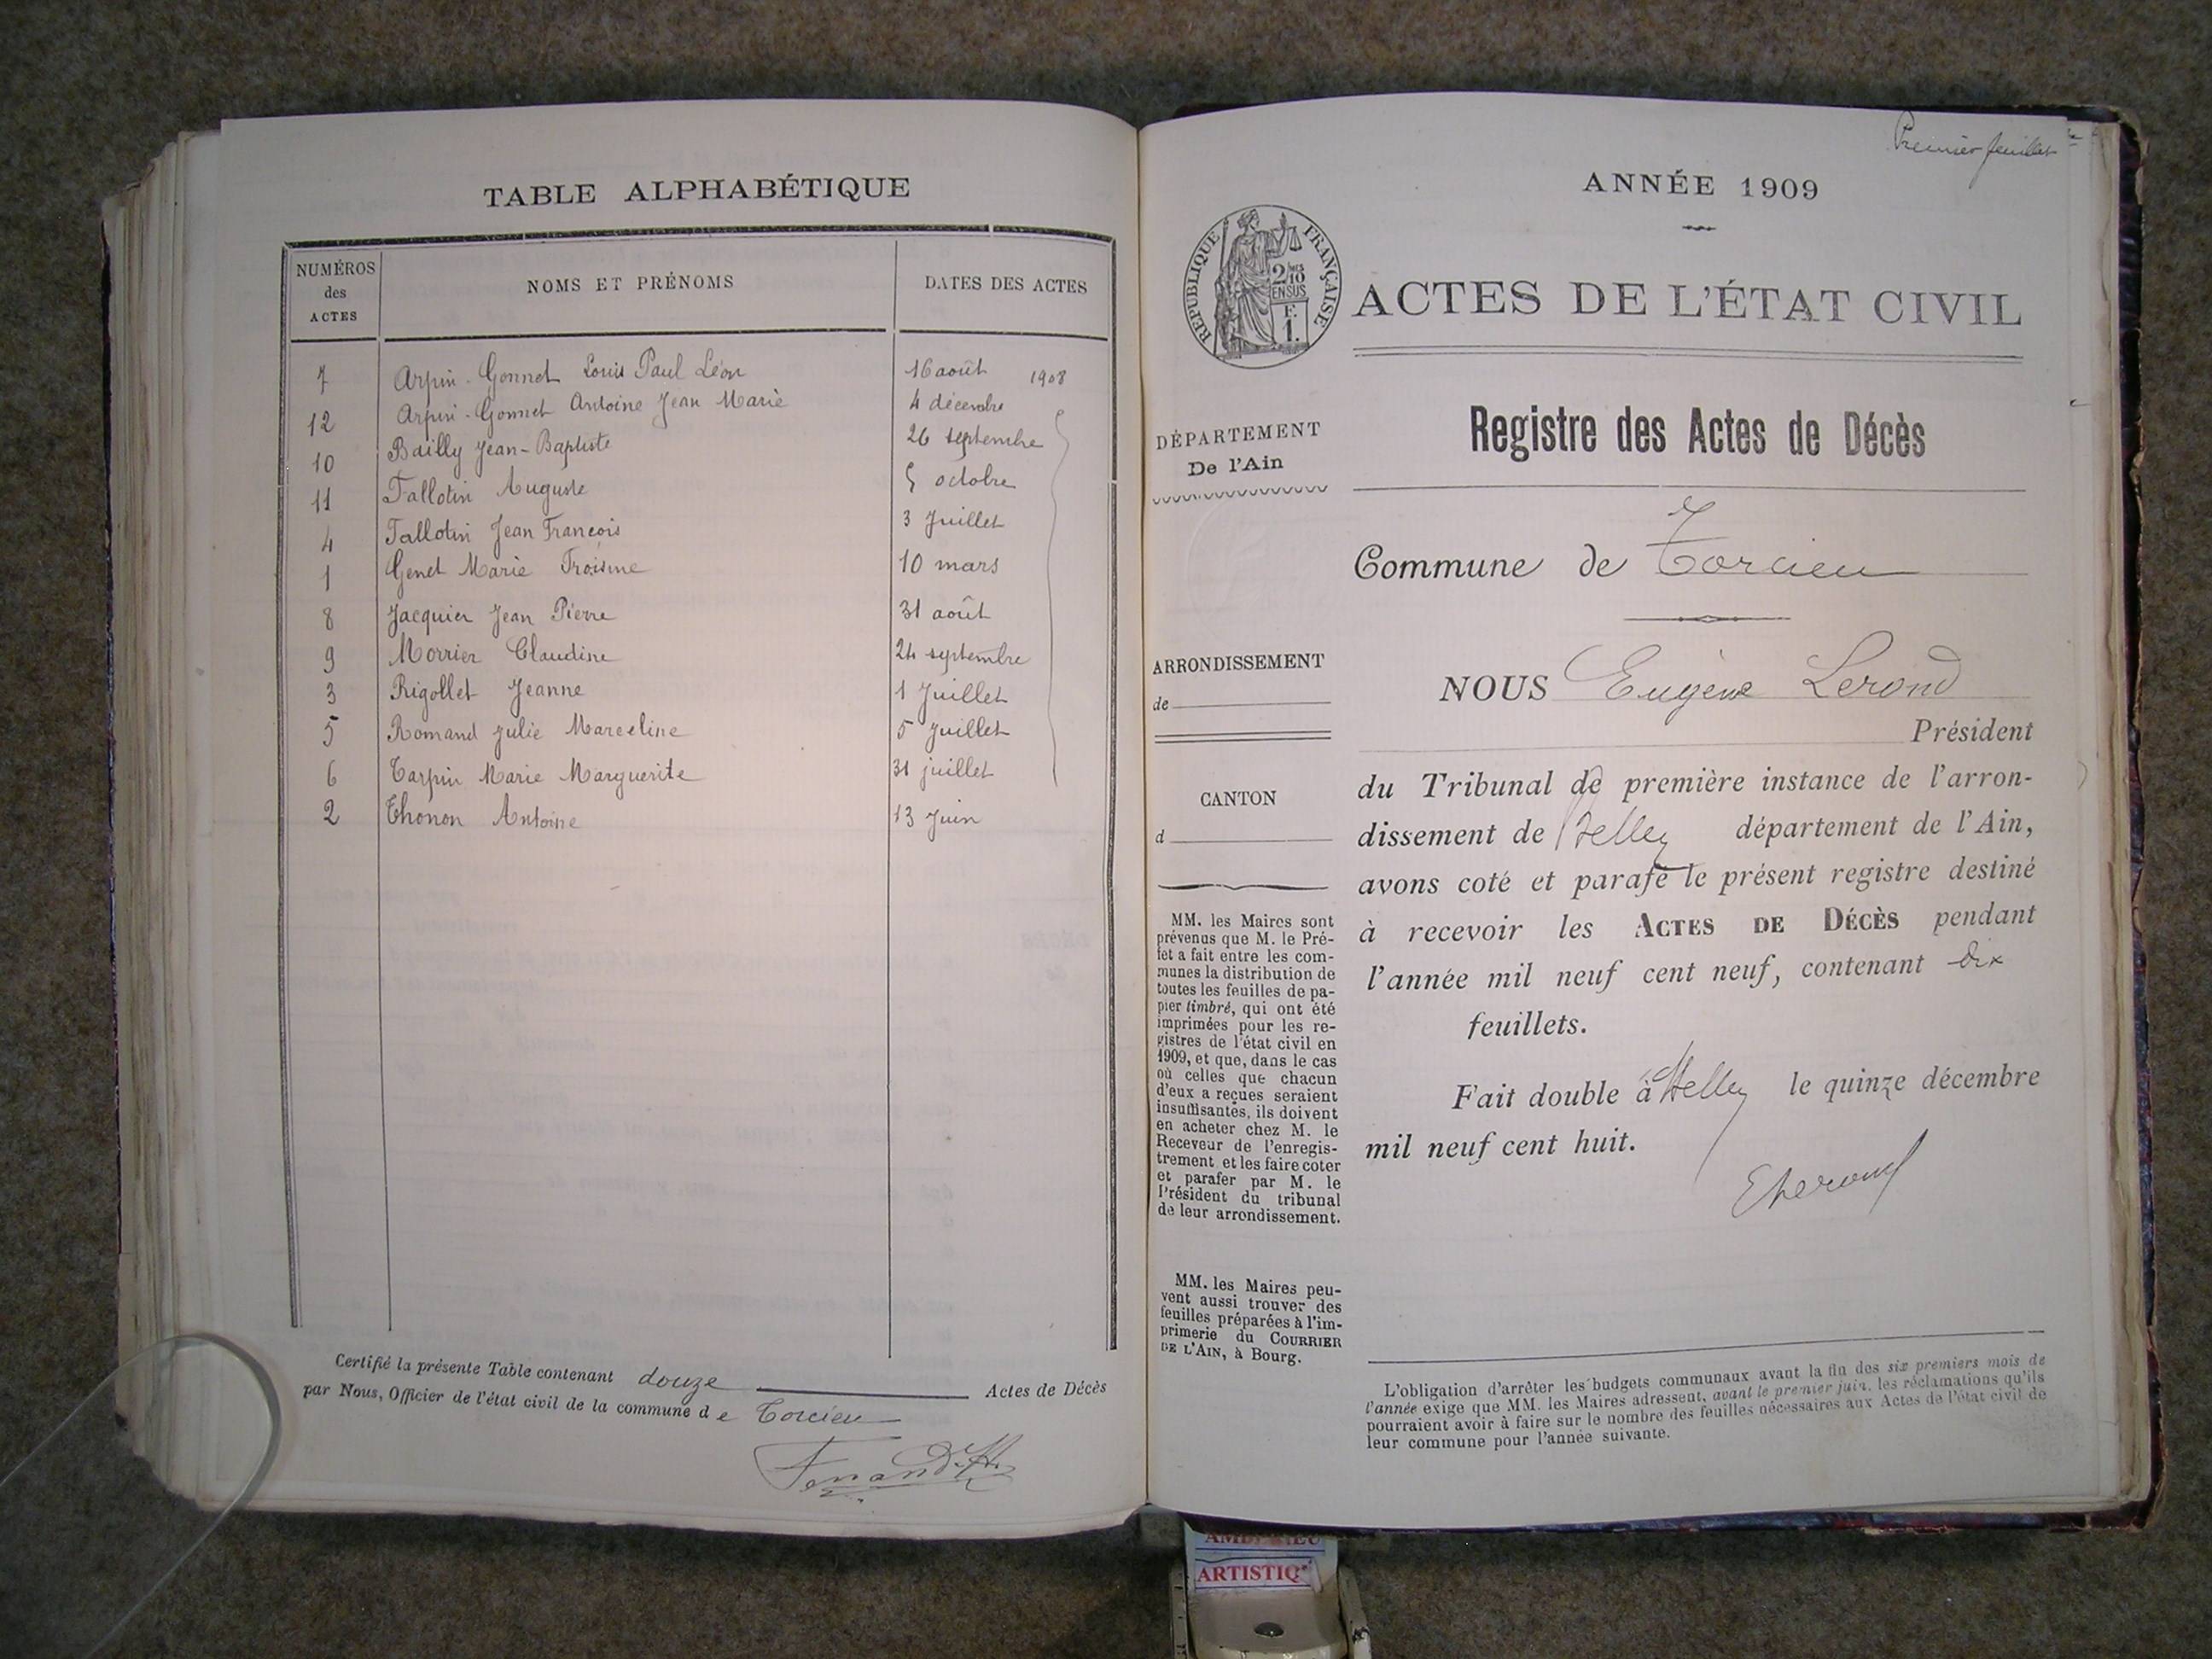 TABLE ALPHABÉTIQUE
NUMÉROS des ACTES
NOMS ET PRÉNOMS
DATES DES ACTES
7 Arpin-Gonnet Louis Paul Léon 16 août 1908
12 Arpin-Gonnet Antoine Jean Marie 4 décembre
10 Bailly Jean-Baptiste 26 septembre
11 Fallotin Auguste 5 octobre
4 Fallotin Jean François 3 Juillet
1 Genet Marie 10 mars
8 Jacquier Jean Pierre 31 août
9 Morrier Claudine 24 septembre
3 Rigollet Jeanne 1 Juillet
5 Romand Julie Marceline 5 Juillet
6 Tarpin Marie Marguerite 31 juillet
2 Thonon Antoine 13 Juin
Certifié la présente Table contenant douze Actes de Décès
par Nous, Officier de l'état civil de la commune de Torcieu
Premier feuillet
ANNÉE 1909
RÉPUBLIQUE FRANÇAISE
2/10
EN SUS
F.
1.
ACTES DE L'ÉTAT CIVIL
DÉPARTEMENT
De l'Ain
ARRONDISSEMENT
de
CANTON
d
MM. les Maires sont
prévenus que M. le Pré-
fet a fait entre les com-
munes la distribution de
toutes les feuilles de pa-
pier timbré, qui ont été
imprimées pour les re-
gistres de l'état civil en
1909, et que, dans le cas
où celles que chacun
d'eux a reçues seraient
insuffisantes, ils doivent
en acheter chez M. le
Receveur de l'enregis-
trement et les faire coter
et parafer par M. le
Président du tribunal
de leur arrondissement.
MM. les Maires peu-
vent aussi trouver des
feuilles préparées à l'im-
primerie du COURRIER
DE L'AIN, à Bourg.
Registre des Actes de Décès
Commune de Torcieu
NOUS Eugène Lerond
Président
du Tribunal de première instance de l'arron-
dissement de Belley département de l'Ain,
avons coté et parafé le présent registre destiné
à recevoir les ACTES DE DÉCÈS pendant
l'année mil neuf cent neuf, contenant dix
feuillets.
Fait double à Belley le quinze décembre
mil neuf cent huit.
ELerond
L'obligation d'arrêter les budgets communaux avant la fin des six premiers mois de
l'année exige que MM. les Maires adressent, avant le premier juin, les réclamations qu'ils
pourraient avoir à faire sur le nombre des feuilles nécessaires aux Actes de l'état civil de
leur commune pour l'année suivante.
ARTISTIQ